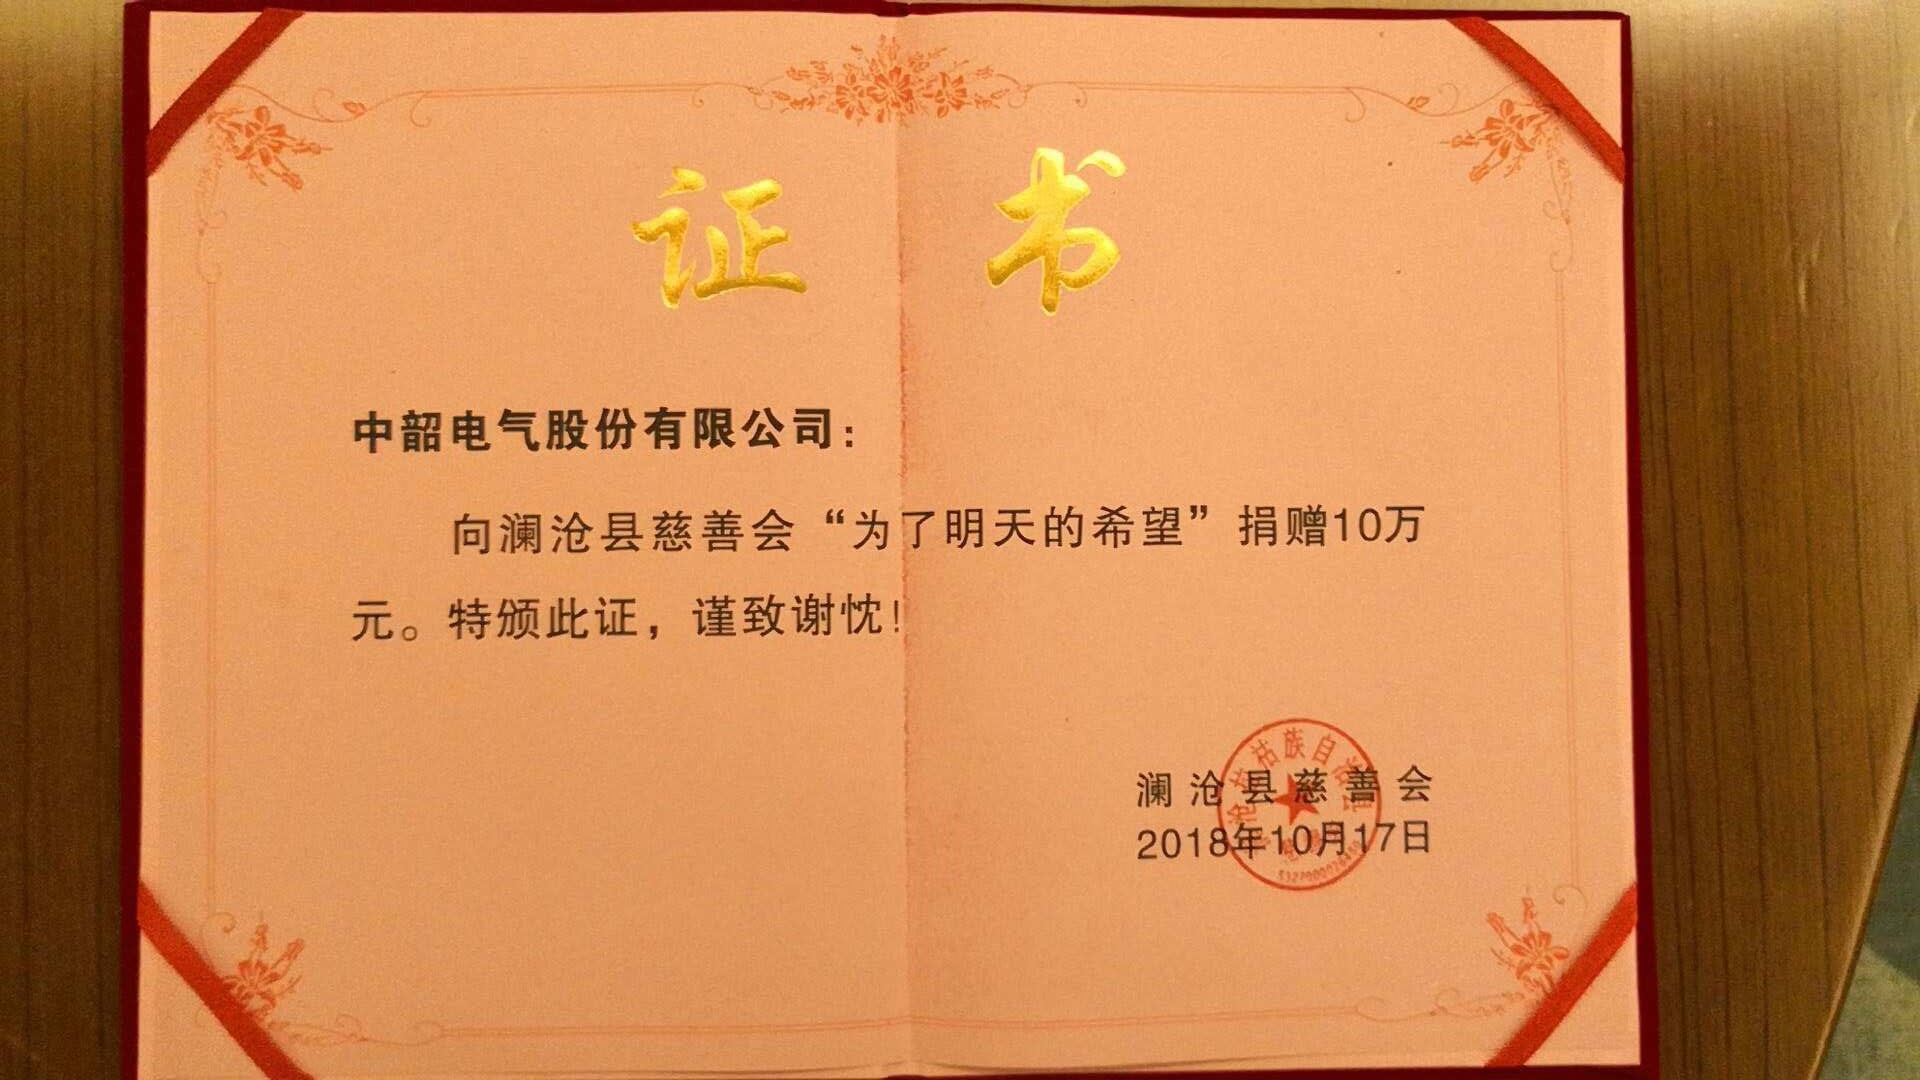 证书
中韶电气股份有限公司：
向澜沧县慈善会“为了明天的希望”捐赠10万
元。特颁此证，谨致谢忱！
澜沧县慈善会
2018年10月17日
沧拉祜族自治县